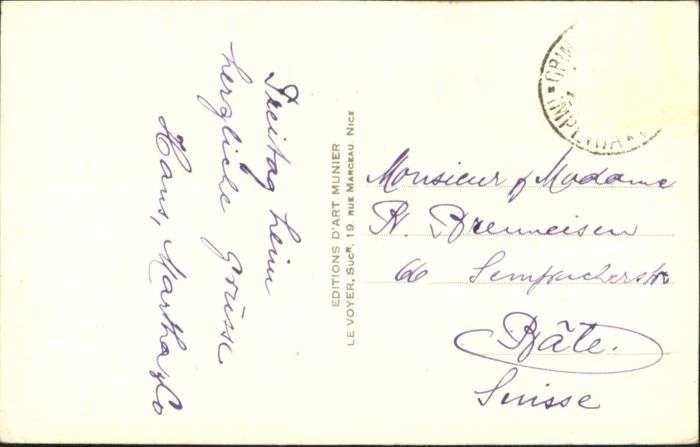 Freitag heim
herzliche Grüsse
Hans, Martha &Co
EDITIONS D'ART MUNIER
LE VOYER, Sucr, 19 RUE MARCEAU NICE
IMPERIA
Monsieur & Madame
R. Brenneisen
66 Sempacherstr.
Bâle.
Suisse